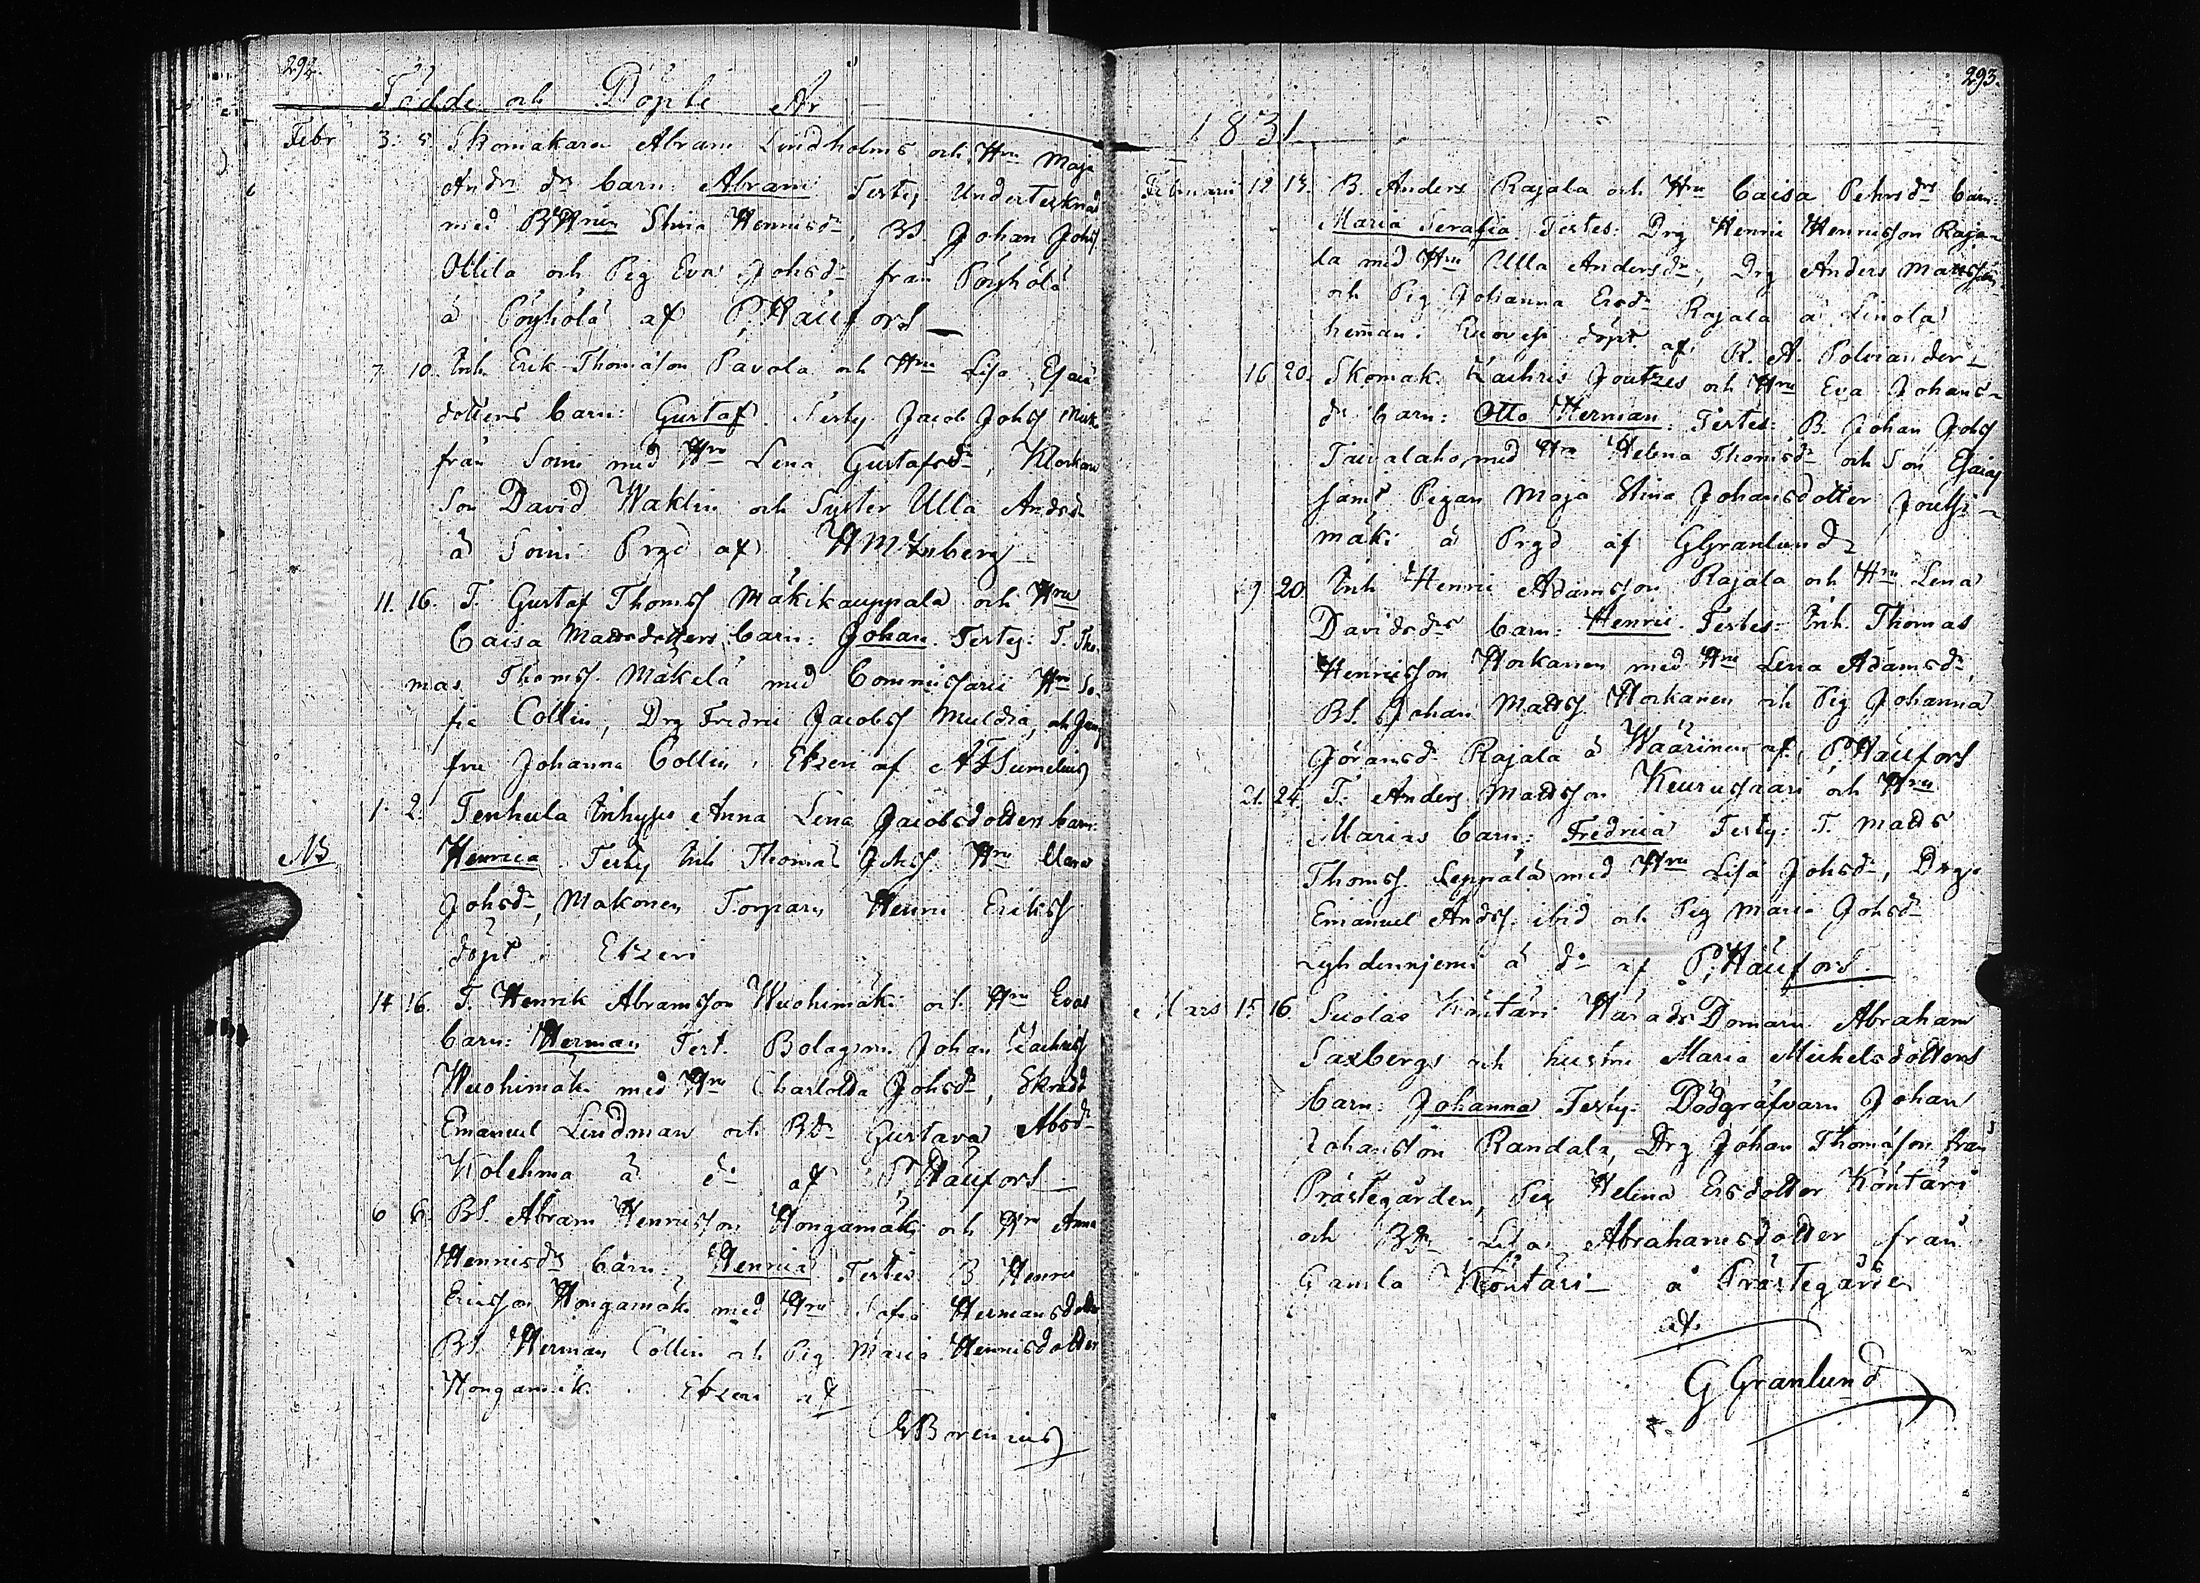 292.
Födde och Döpte År
Febr 3. 5 Skomakaren Abram Lindholms och Hru Maja
Andrs dr barn: Abram Testes Undertecknad
med Stina Henricsdr, BS. Johan Johss
Ollila och Pig Eva Johsdr från Pöyhölä
å Pöyhölä af P. Häufors
7. 10. Inh. Erik Thomasson Pavola och Hru Lisa Esaiæ
dotters barn: Gustaf. Testes Jacob Johss
från Soini med Hru Lena Gustafsdr, Klockare
Son David Waklin och Syster Ulla Andrsdr
å Soini Prgd af
11. 16. T. Gustaf Thomss Mäkikauppala och Hru
Caisa Mattsdotters barn: Johan. Testes: T. Tho-
mas Thomss. Mäkelä med Commissarii Hru So-
fia Collin, Drg Fredric Jacobss Muldia, och Jung
fru Johanna Collin i Etzeri af A F Sumelius
1. 2. Tenhula Inhyses Anna Lena Jacobsdotters barn:
NB Henrica. Testes Inh Thomas Johss. Hru
Johsdr, Makonen Torparn Henric Erikss
döpt i Etzeri
14 16. T. Henrik Abramsson Wuohimäki och Hru Evas
barn: Herman Test. Bolagsm Johan Zachriss
Wuohimäki med Hru Charlotta Johsdr, Skradd
Emanuel Lindman och BDr Gustava Absdr
Kolehma å do af P. Häufors
6 6. BS. Abram Henricsson Hongamäki och Hru Anna
Henricsdrs barn: Henrica Testes B Henric
Ericsson Hongamäki med Hru Sofia Hermansdotter
BS. Herman Collin och Pig Maria Henricsdotter
Hongamäki. Etzeri af
Borenius
293.
1831.
Februarii 12 13. B. Anders Rajala och Hru Caisa Pehrsdrs barn:
Maria Serafia. Testes: Drg Henric Henricsson Raja-
la med Hru Ulla Andersdr, Drg Anders Mattsson
och Pig Johanna Ersdr Rajala å Linola
hemman i Ruovesi döpt af R. A. Polviander
16 20. Skomak. Zachris Joutzes och Hru Eva Johans-
dr barn: Otto Herman. Testes: B. Johan Johss
Taivalaho med Hru Helena Thomsdr och Son Esaias
samt Pigan Maja Stina Johansdotter Joutsi-
mäki å Prgd af GGranlund
19 20. Inh Henric Adamsson Rajala och Hru Lena
Davidsdrs barn: Henric. Testes: Inh. Thomas
Henricsson Horkanen med Hru Lena Adamsdr,
BS Johan Mattss Horkanen och Pig Johanna
Göransdr Rajala å Wäärinen af P. Häufors
21. 24. T. Anders Mattsson Keurusaari och Hru
Marias barn: Fredrica Testes: T. Matts
Thomss. Leppälä med Hru Lisa Johsdr, Drg
Emanuel Andss. ibid och Pig Maria Johsdr
Lyhdenniemi å do af P. Häufors.
Mars 15 16. Suolax Köntäri Härads Domarn Abraham
Saxbergs och hustru Maria Michelsdotters
barn: Johanna Testes: Dödgräfvarn Johan
Johansson Randala, Drg Johan Thomasson från
Prästegården, Pig Helena Ersdotter Köntäri
och BDr Lisa Abrahamsdotter från
Gamla Köntäri å Prästegården
af
G Granlund